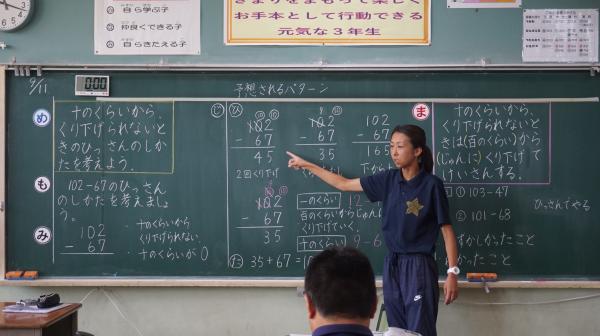 自ら学ぶ子
仲良くできる子
自らきたえる子
きまりをまもって楽しく
お手本として行動できる
元気な3年生
9/11
0:00
予想されるパターン
め
十のくらいから、
くり下げられないと
きのひっさんのしか
たを考えよう。
も
102-67のひっさん
のしかたを考えましょ
う。
み
102
- 67
・十のくらいから
くり下げられない
・十のくらいが0
じ
ひ
102
- 67
45
2回くり下げ
102
- 67
35
102
- 67
35
102
- 67
165
下から
一のくらい
12
百のくらいからじゅん
にくり下げていく。
十のくらい
9-6
た
35+67=10
ま
十のくらいから、
くり下げられないと
きは(百のくらい)から
(じゅんに)くり下げて
けいさんする。
① 103-47
② 101-68
ひっさんでやる
むずかしかったこと
わかったこと